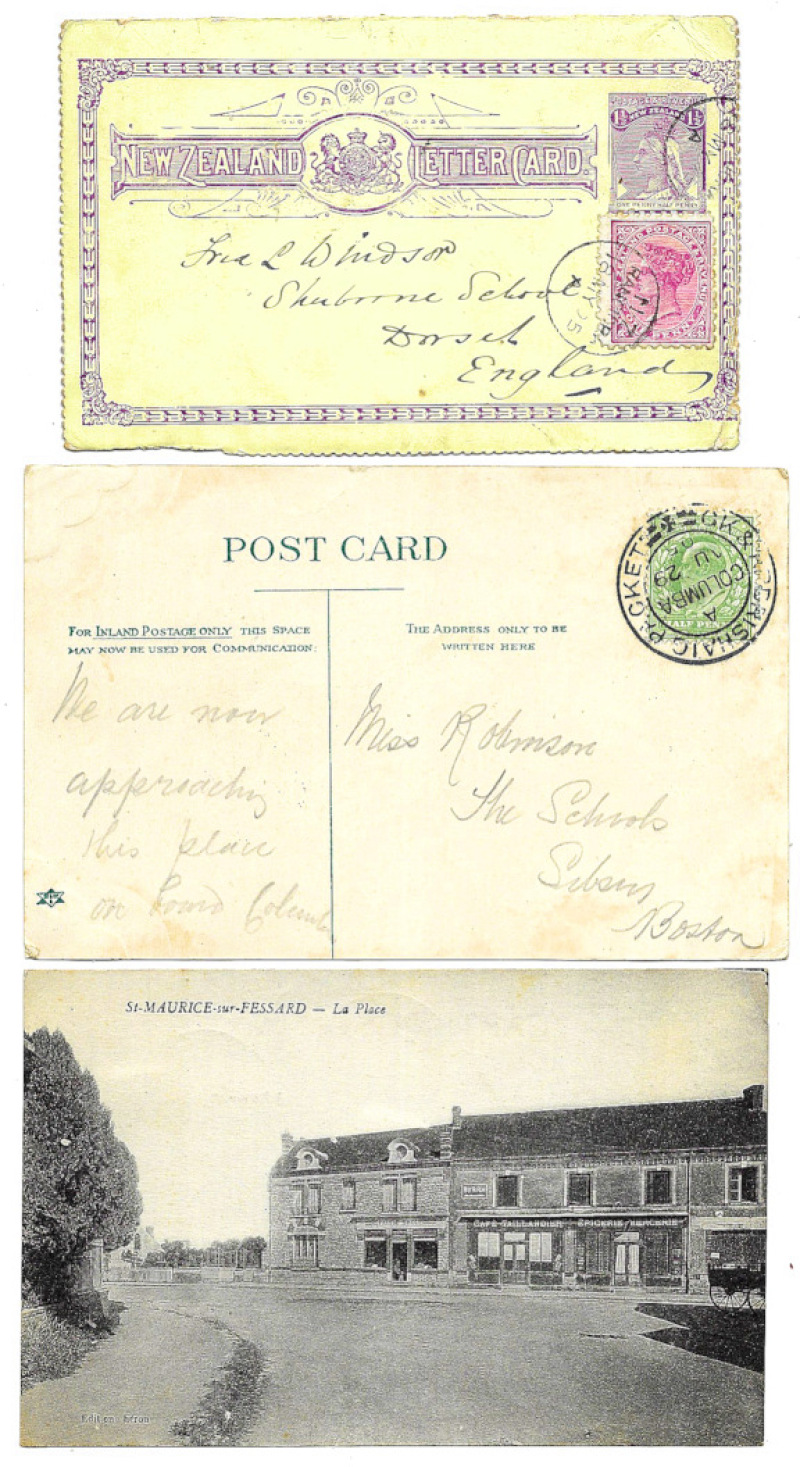 NEW ZEALAND LETTER CARD.
1½ 1½
NEW ZEALAND
ONE PENNY HALF PENNY
Fred L Windsor
Sherborne School
Dorset
England
POST CARD
FOR INLAND POSTAGE ONLY THIS SPACE
MAY NOW BE USED FOR COMMUNICATION:
THE ADDRESS ONLY TO BE
WRITTEN HERE
GK & ARDRISHAIG PACKET
COLUMBA
A
AU 29
HALF PENNY
We are now
approaching
this place
on board Columba
Miss Robinson
The Schools
Sibsey
Boston
St-MAURICE-sur-FESSARD — La Place
CAFÉ TAILLANDIER EPICERIE MERCERIE